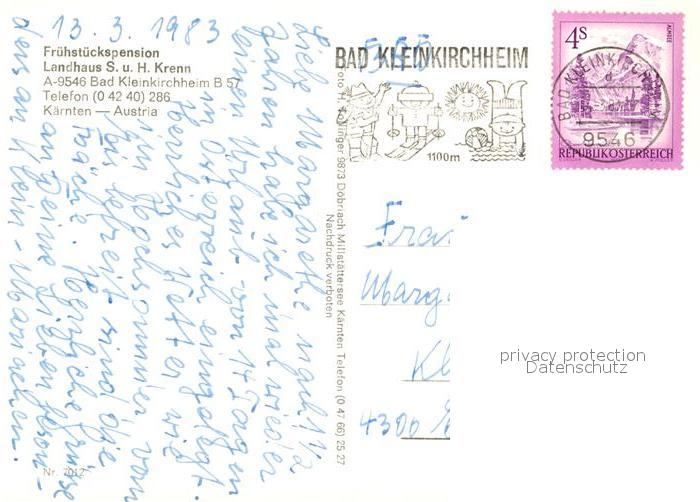 13. 3. 1983
Frühstückspension
Landhaus S. u. H. Krenn
A-9546 Bad Kleinkirchheim B 57
Telefon (0 42 40) 286
Kärnten — Austria
Liebe Margarethe nach 12
Jahren habe ich mal wieder
einen Urlaub von 14 Tagen
in Österreich eingelegt.
Herrliches Wetter, wie
im Hochsommer von
befreit sind die
herzliche Grüsse
an Deine Lieben beson-
ders an Klein-
Nr. 7012
Döbriach Millstättersee Kärnten Telefon (0 47 66) 25 27
Nachdruck verboten
BAD KLEINKIRCHHEIM
1100m
4S
REPUBLIK ÖSTERREICH
BAD KLEINKIRCHHEIM
9546
Frau
Marg
Kl
4300
privacy protection
Datenschutz